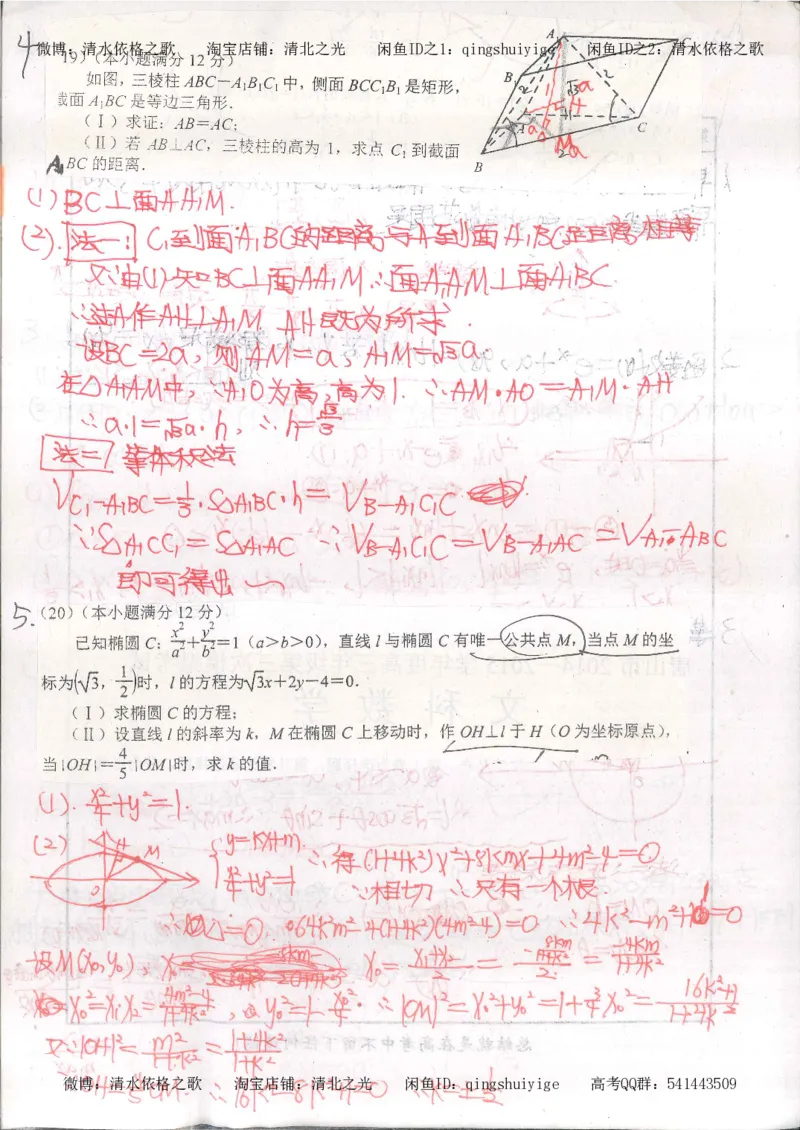 4
微博：清水依格之歌 淘宝店铺：清北之光 闲鱼ID之1：qingshuiyige 闲鱼ID之2：清水依格之歌
19）（本小题满分 12 分）
如图，三棱柱 ABC－A₁B₁C₁ 中，侧面 BCC₁B₁ 是矩形，
截面 A₁BC 是等边三角形．
（Ⅰ）求证：AB＝AC；
（Ⅱ）若 AB⊥AC，三棱柱的高为 1，求点 C₁ 到截面
A₁BC 的距离．
(1) BC⊥面AA₁M.
(2). 法一: C₁到面A₁BC的距离与A到面A₁BC距离相等
又∵由(1)知BC⊥面AA₁M ∴面A₁AM⊥面A₁BC.
∴过A作AH⊥A₁M, AH既为所求.
设BC=2a, 则AM=a, A₁M=√3a.
在△A₁AM中, ∵A₁O为高,高为1. ∴AM·AO=A₁M·AH
∴a·1=√3a·h, ∴h=√3/3
法二 等体积法
V C₁-A₁BC=1/3·S△A₁BC·h=V B-A₁C₁C
∵S△A₁CC₁=S△A₁AC ∴V B-A₁C₁C=V B-A₁AC=V A₁-ABC
即可得出
5. （20）（本小题满分 12 分）
已知椭圆 C：x²/a²＋y²/b²＝1（a＞b＞0），直线 l 与椭圆 C 有唯一公共点 M，当点 M 的坐
标为(√3，1/2)时，l 的方程为√3x＋2y－4＝0．
（Ⅰ）求椭圆 C 的方程；
（Ⅱ）设直线 l 的斜率为 k，M 在椭圆 C 上移动时，作 OH⊥l 于 H（O 为坐标原点），
当|OH|＝4/5|OM|时，求 k 的值．
(1). x²/4+y²=1.
(2) y=kx+m.
x²/4+y²=1
∴得(1+4k²)x²+8kmx+4m²-4=0
∵相切 ∴只有一个根
∴△=0. 64k²m²-4(1+4k²)(4m²-4)=0 ∴4k²-m²+1=0
设M(x₀,y₀) x₀=(x₁+x₂)/2=(-8km/(1+4k²))/2=-4km/(1+4k²)
x₀²=x₁x₂=(4m²-4)/(1+4k²), y₀²=1-x₀²/4 ∴|OM|²=x₀²+y₀²=1+3/4x₀²=(16k²+1)/(1+4k²)
又∵|OH|²=m²/(1+k²)=(1+4k²)/(1+k²)
微博：清水依格之歌 淘宝店铺：清北之光 闲鱼ID：qingshuiyige 高考QQ群：541443509